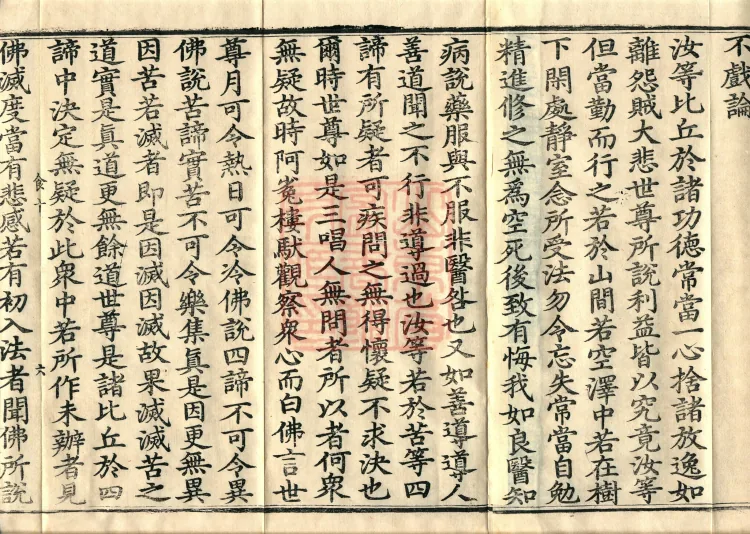 不戲論
汝等比丘於諸功德常當一心捨諸放逸如
離怨賊大悲世尊所說利益皆以究竟汝等
但當勤而行之若於山間若空澤中若在樹
下閑處靜室念所受法勿令忘失常當自勉
精進修之無為空死後致有悔我如良醫知
病說藥服與不服非醫咎也又如善導導人
善道聞之不行非導過也汝等若於苦等四
諦有所疑者可疾問之無得懷疑不求決也
爾時世尊如是三唱人無問者所以者何衆
無疑故時阿㝹樓馱觀察衆心而白佛言世
尊月可令熱日可令冷佛說四諦不可令異
佛說苦諦實苦不可令樂集真是因更無異
因苦若滅者即是因滅因滅故果滅滅苦之
道實是真道更無餘道世尊是諸比丘於四
諦中決定無疑於此衆中若所作未辦者見
食十 六
佛滅度當有悲感若有初入法者聞佛所說